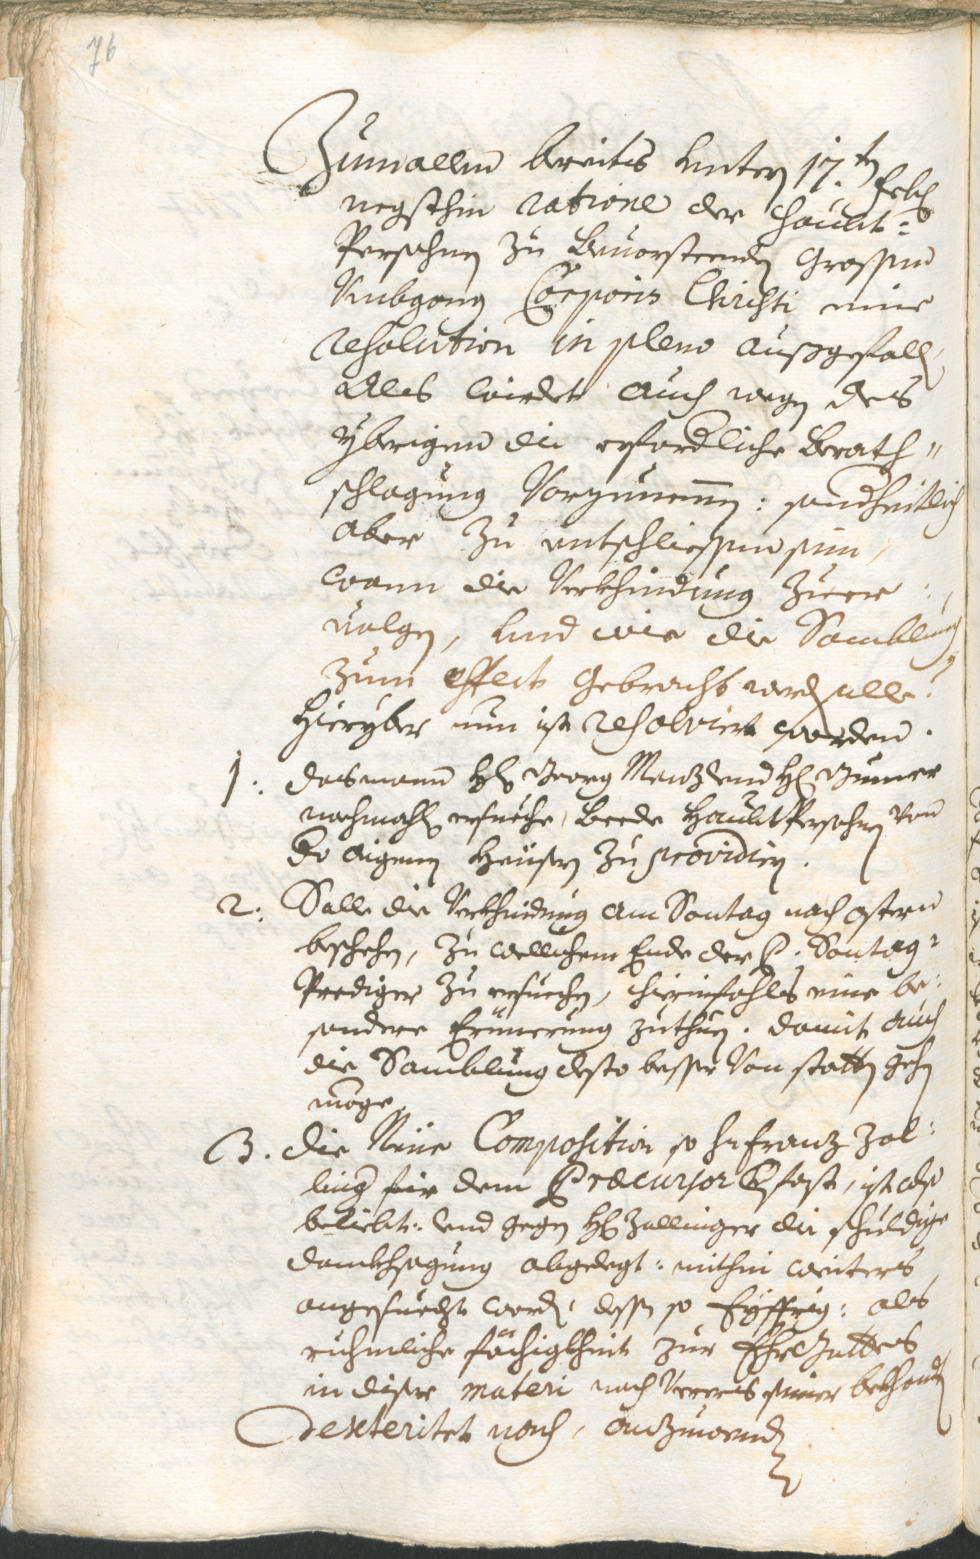 76
Zumallen bereits unterm 17.ten Feb.
negsthin ratione der Haubt=
Persohnen zu bevorsteenden grossen
Umbgang Corporis Christi eine
resolution in pleno außgefalln,
Als wirdet auch wegen des
yberigen die erforderliche Berath"
schlagung vorzunemen: sonderheitlich
aber zu entschliessen sein,
wann die Verkhindung zu er:
volgen, und wie die Samblung
zum effect gebracht werden solle?
Hieryber nun ist resolviert worden.
1. das mann H. Georg Menz und H. Gumer
nochmahls ersueche, beede Haubt Persohnen von
do aigenen Heusern zu providiern.
2. Solle die Verkhindung am Sontag nach Ostern
beschehen, zu welchem Ende der P. Sontag=
Prediger zu ersuechen, hierinfahls eine be:
sondere Erinnerung zuthuen. damit auch
die Samblung desto besser von statten gehen
möge.
3. die Neue Composition so H. Franz Zal:
linger für dem Præcursor verfast, ist also
beliebt: und gegen H. Zallinger die schuldige
dankhsagung abgelegt: mithin weiters
angesuecht worden, dessen so Eyffrig: als
ruhmliche fähigkheit zur Ehr Gottes
in diser materi nach seiner bekhandten
Dexteritet noch, anzuwenden